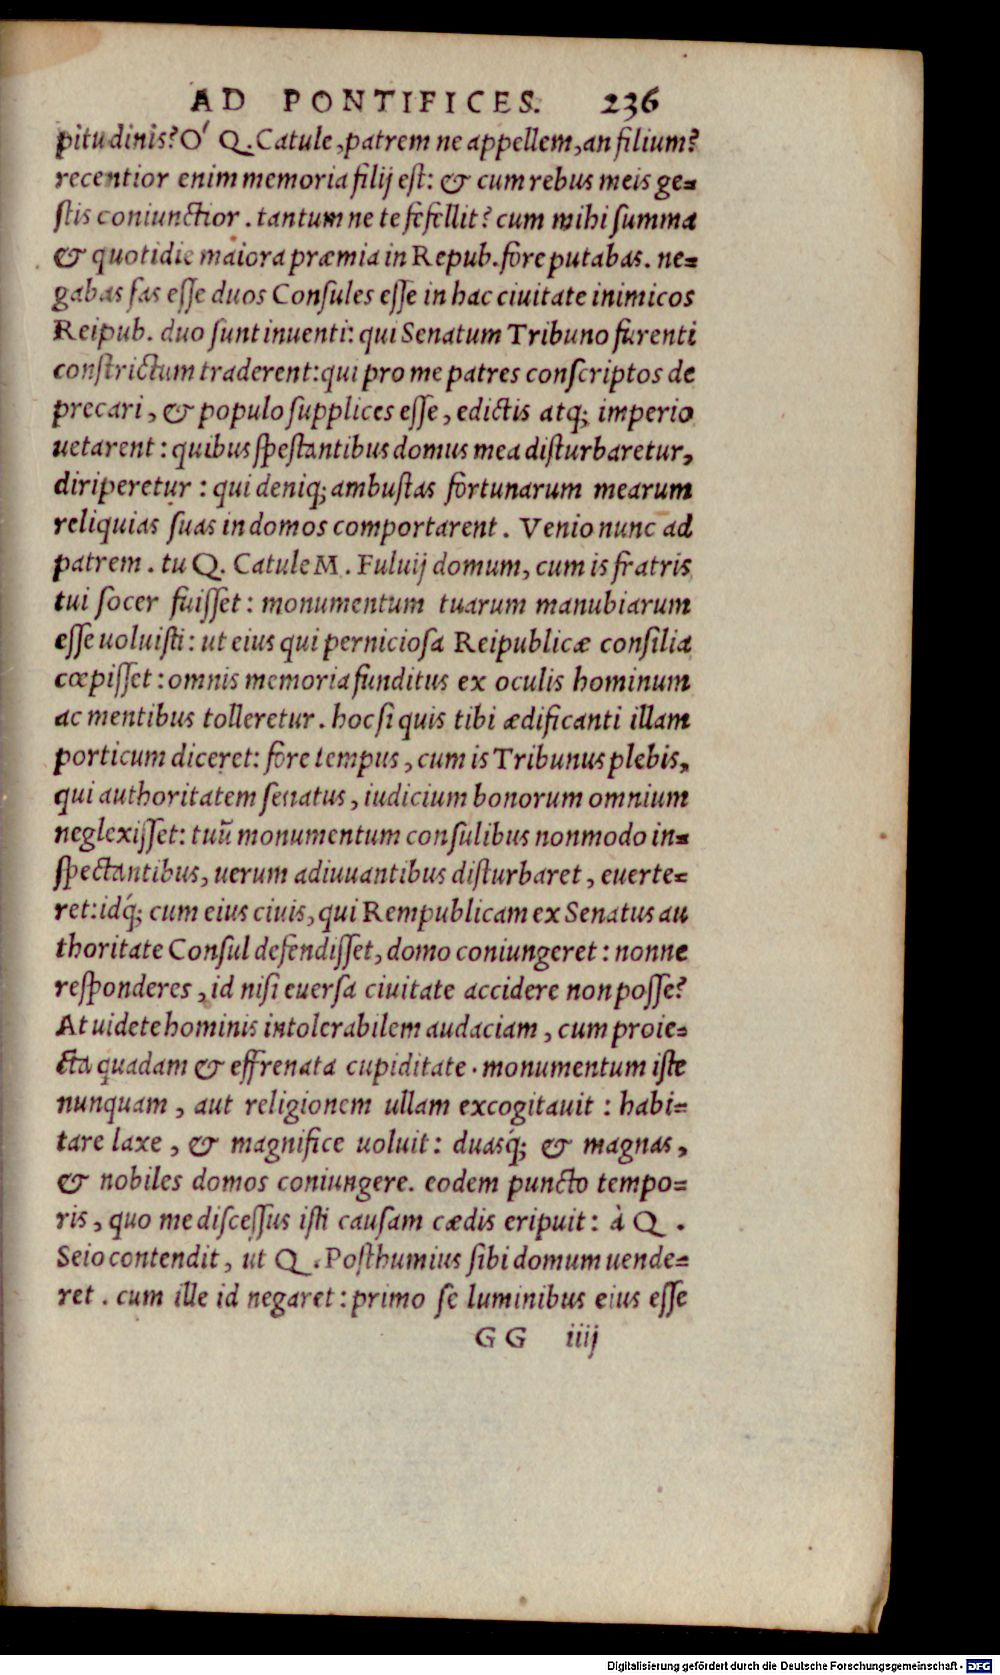 AD PONTIFICES. 236
pitudinis? O' Q. Catule, patrem ne appellem, an filium?
recentior enim memoria filij est: & cum rebus meis ge=
stis coniunctior. tantum ne te fefellit? cum mihi summa
& quotidie maiora præmia in Repub. fore putabas. ne=
gabas fas esse duos Consules esse in hac ciuitate inimicos
Reipub. duo sunt inuenti: qui Senatum Tribuno furenti
constrictum traderent: qui pro me patres conscriptos de
precari, & populo supplices esse, edictis atq; imperio
uetarent: quibus spestantibus domus mea disturbaretur,
diriperetur: qui deniq; ambustas fortunarum mearum
reliquias suas in domos comportarent. Venio nunc ad
patrem. tu Q. Catule M. Fuluij domum, cum is fratris
tui socer fuisset: monumentum tuarum manubiarum
esse uoluisti: ut eius qui perniciosa Reipublicæ consilia
cœpisset: omnis memoria funditus ex oculis hominum
ac mentibus tolleretur. hoc si quis tibi ædificanti illam
porticum diceret: fore tempus, cum is Tribunus plebis,
qui authoritatem senatus, iudicium bonorum omnium
neglexisset: tuũ monumentum consulibus nonmodo in=
spectantibus, uerum adiuuantibus disturbaret, euerte=
ret: idq́; cum eius ciuis, qui Rempublicam ex Senatus au
thoritate Consul defendisset, domo coniungeret: nonne
responderes, id nisi euersa ciuitate accidere non posse?
At uidete hominis intolerabilem audaciam, cum proie=
cta quadam & effrenata cupiditate. monumentum iste
nunquam, aut religionem ullam excogitauit: habi=
tare laxe, & magnifice uoluit: duasq́; & magnas,
& nobiles domos coniungere. eodem puncto tempo=
ris, quo me discessus isti causam cædis eripuit: à Q.
Seio contendit, ut Q. Posthumius sibi domum uende=
ret. cum ille id negaret: primo se luminibus eius esse
GG iiij
Digitalisierung gefördert durch die Deutsche Forschungsgemeinschaft - DFG